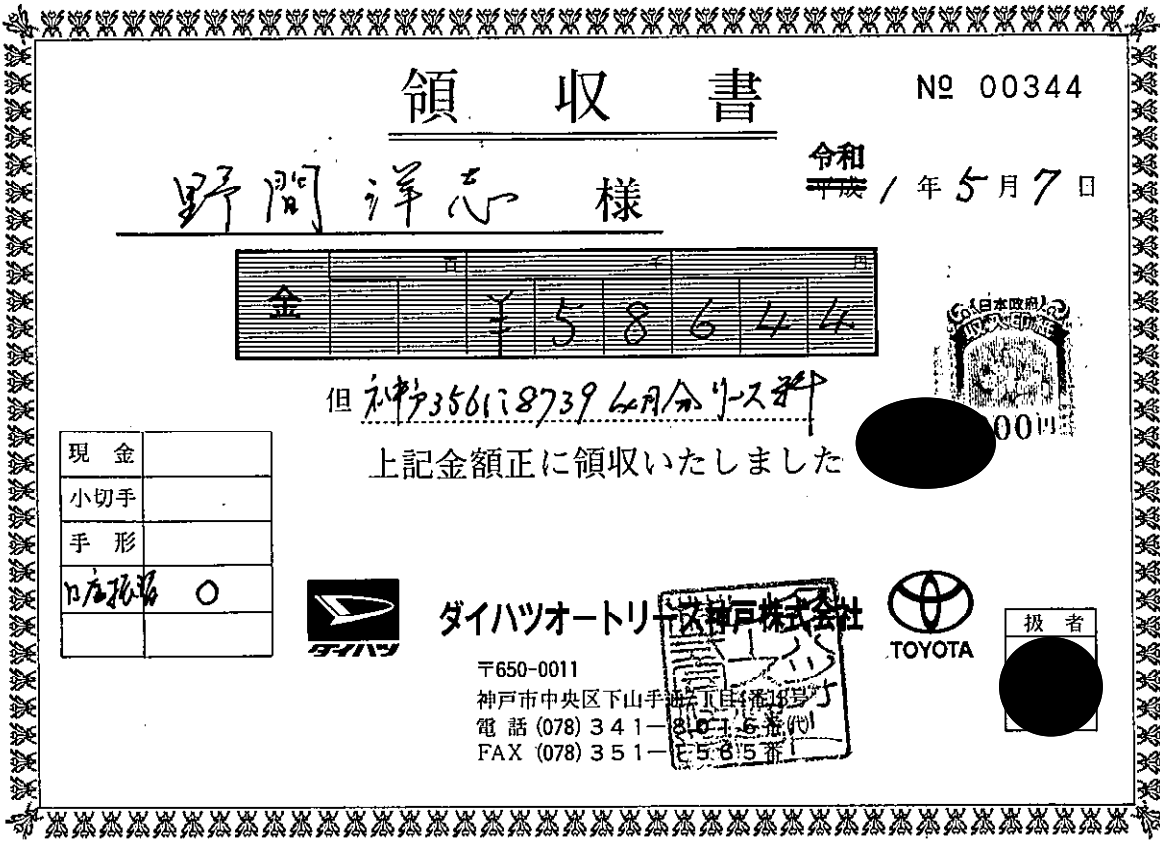 領収書
№ 00344
令和
平成 1年5月7日
野間洋志 様
百 千 円
金 ¥58644
日本政府
00円
但 神戸356に8739 4月分リース料
上記金額正に領収いたしました
現金
小切手
手形
口座振替 ○
ダイハツ
ダイハツオートリース神戸株式会社
TOYOTA
扱者
〒650-0011
神戸市中央区下山手通7丁目4番15号
電話(078)341-8016番(代)
FAX(078)351-